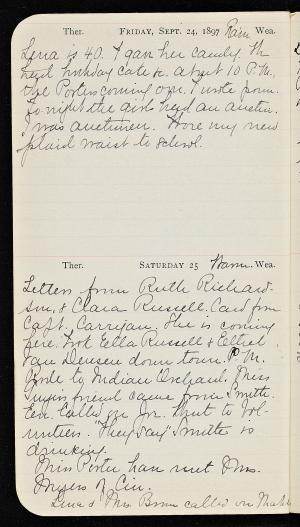 Ther. FRIDAY, SEPT. 24, 1897 Rain Wea.
Lena is 40. I gave her candy. We
had birthday cake &c. about 10 P.M.,
the Porters coming over. I wrote poem.
To night the girls had an auction.
I was auctioneer. Wore my new
plaid waist to school.
Ther. SATURDAY 25 Warm Wea.
Letters from Ruth Richard-
son, & Clara Russell. Card from
Capt. Carrigan. She is coming
here. Took Ella Russell & Ethel
Van Deusen down town. P.M.
Rode to Indian Orchard. Miss
friend came from Smith.
Called on Jr. went to Vol-
unteers. "They say" Smith is
drinking.
Miss Porter has met Mrs.
Myers of Cin.
Lena & Mrs. called on